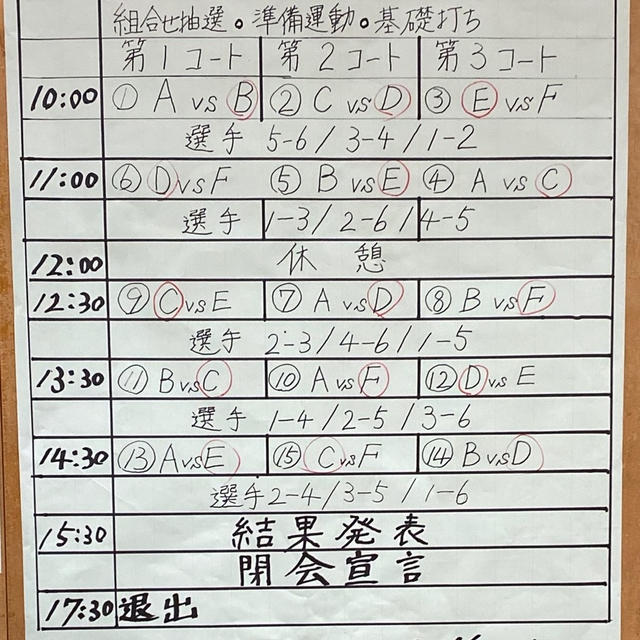 組合せ抽選。準備運動。基礎打ち
第1コート 第2コート 第3コート
10:00 ① A vs B ② C vs D ③ E vs F
選手 5-6 / 3-4 / 1-2
11:00 ⑥ D vs F ⑤ B vs E ④ A vs C
選手 1-3 / 2-6 / 4-5
12:00 休憩
12:30 ⑨ C vs E ⑦ A vs D ⑧ B vs F
選手 2-3 / 4-6 / 1-5
13:30 ⑪ B vs C ⑩ A vs F ⑫ D vs E
選手 1-4 / 2-5 / 3-6
14:30 ⑬ A vs E ⑮ C vs F ⑭ B vs D
選手 2-4 / 3-5 / 1-6
15:30 結果発表
閉会宣言
17:30 退出